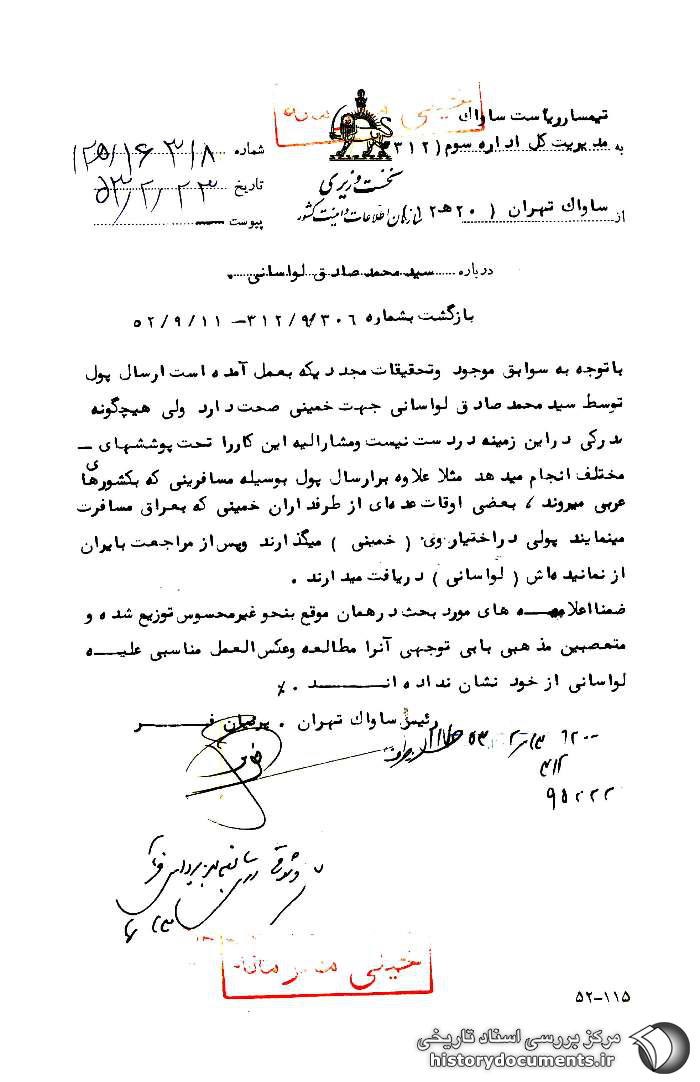 خیلی محرمانه
تیمسار ریاست ساواک
به مدیریت کل اداره سوم (۳۱۲)
شماره
نخست وزیری
تاریخ ۵۳/۲/۲۳
سازمان اطلاعات و امنیت کشور
از ساواک تهران (۲۰ هـ ۱۲)
پیوست
درباره سید محمد صادق لواسانی.
بازگشت بشماره ۳۱۲/۹/۳۰۶ – ۵۲/۹/۱۱
با توجه به سوابق موجود وتحقیقات مجددیکه بعمل آمده است ارسال پول
توسط سید محمد صادق لواسانی جهت خمینی صحت دارد ولی هیچگونه
مدرکی دراین زمینه در دست نیست ومشارالیه این کاررا تحت پوششهای –
مختلف انجام میدهد مثلا علاوه برارسال پول بوسیله مسافرینی که بکشورهای
عربی میروند ، بعضی اوقات عده‌ای از طرفداران خمینی که بعراق مسافرت
مینمایند پولی دراختیاروی ( خمینی ) میگذارند وپس از مراجعت بایران
از نمانیده‌اش ( لواسانی ) دریافت میدارند .
ضمنا اعلامیه های مورد بحث درهمان موقع بنحو غیرمحسوس توزیع شده و
متعصبین مذهبی بابی توجهی آنرا مطالعه وعکس العمل مناسبی علیه
لواسانی از خود نشان نداده اند . ٪
رئیس ساواک تهران . پرنیان فر
۶۲۰۰
۳۱۲
۹۵۲۲۲
خیلی محرمانه
۵۲-۱۱۵
مرکز بررسی اسناد تاریخی
historydocuments.ir